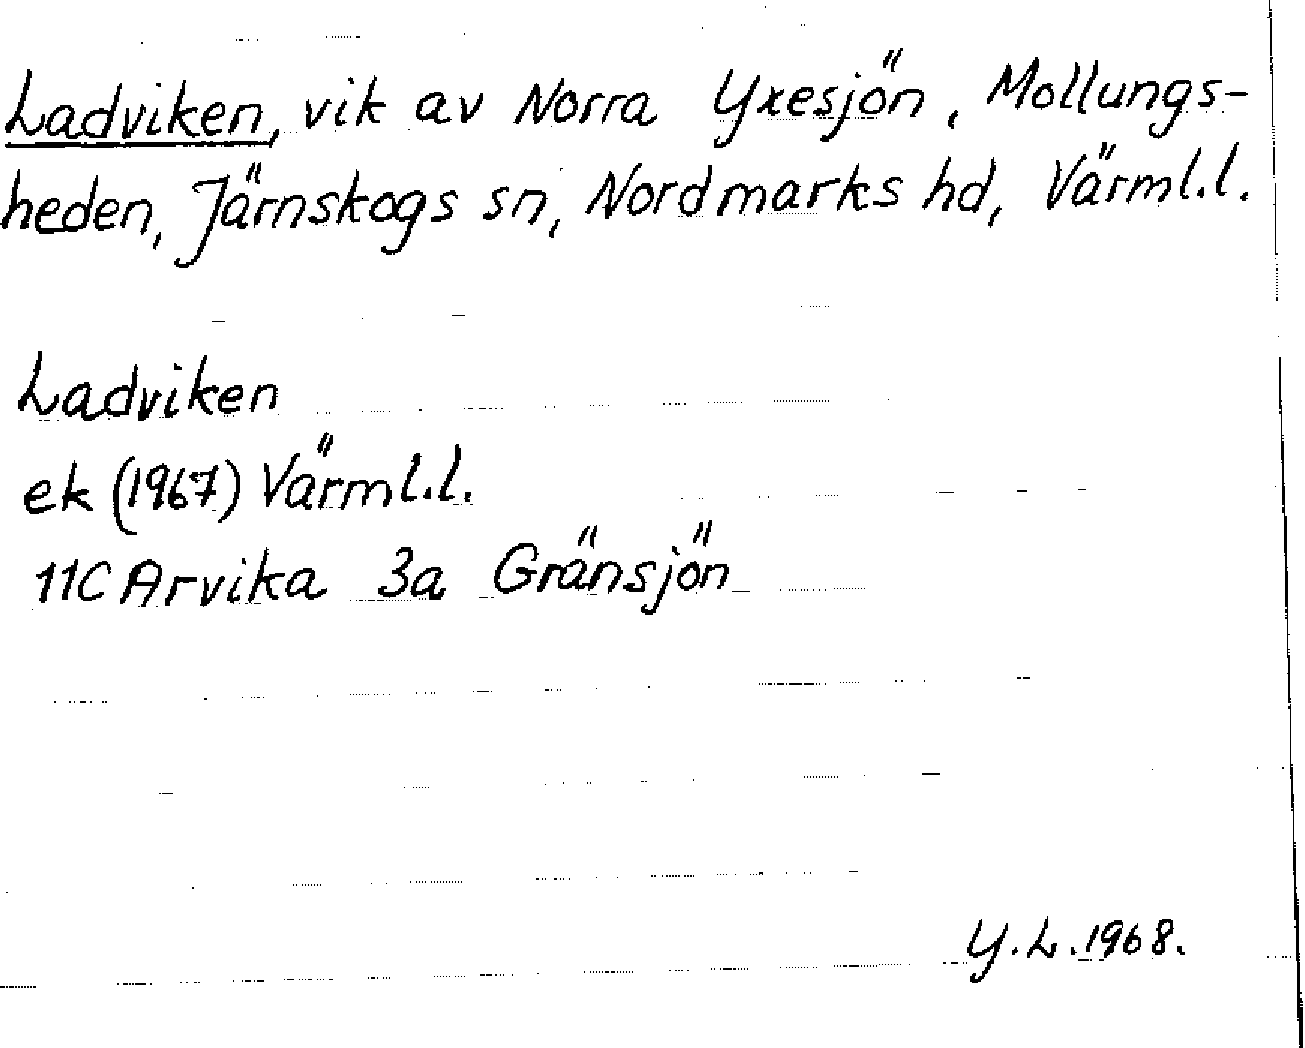 Ladviken, vik av Norra Yxesjön, Mollungs-
heden, Järnskogs sn, Nordmarks hd, Värml.l.
Ladviken
ek (1967) Värml.l.
11C Arvika 3a Gränsjön
Y.L.1968.